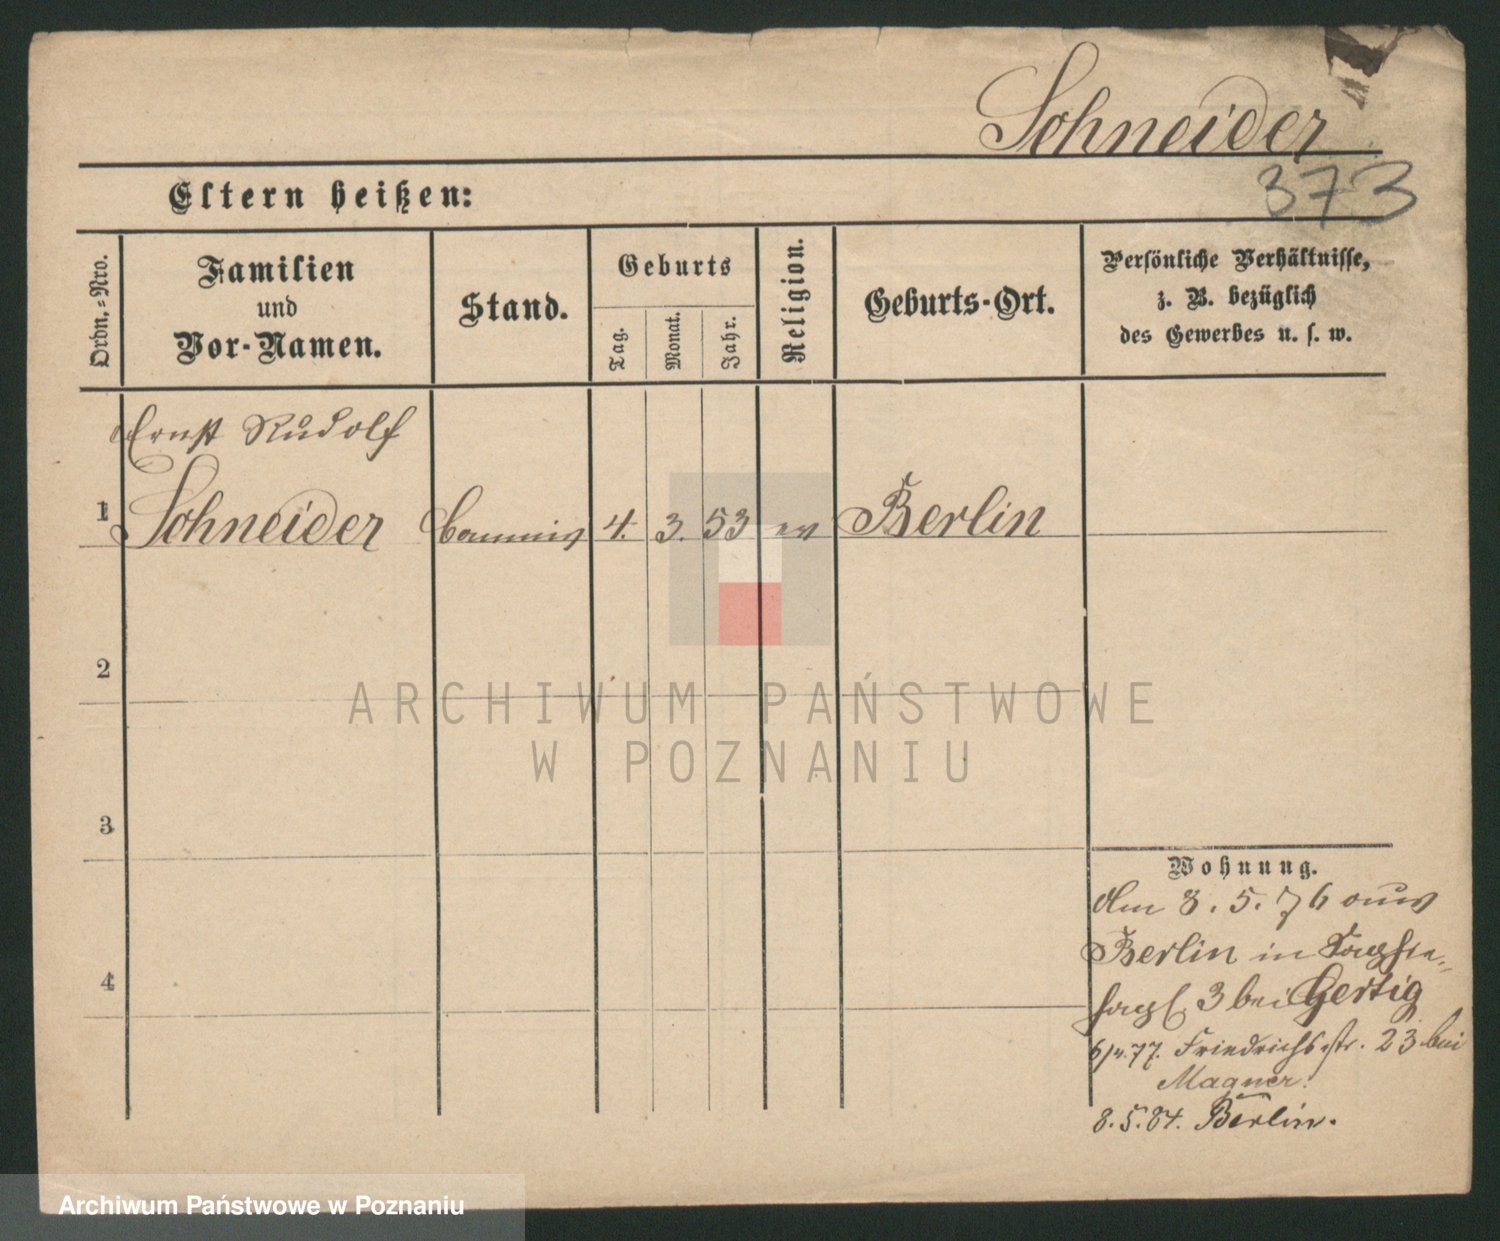 Schneider
373
Eltern heißen:
Ordn.=Nro.
Familien
und
Vor-Namen.
Stand.
Geburts
Tag.
Monat.
Jahr.
Religion.
Geburts-Ort.
Persönliche Verhältnisse,
z. B. bezüglich
des Gewerbes u. s. w.
Ernst Rudolf
1 Schneider Commis 4. 3. 53 ev Berlin
2
ARCHIWUM PAŃSTWOWE
W POZNANIU
3
Wohnung.
Am 3. 5. 76 aus
Berlin in
4
3 bei Gertig
77. Friedrichsstr. 23 bei
Magner.
8. 5. 84. Berlin.
Archiwum Państwowe w Poznaniu